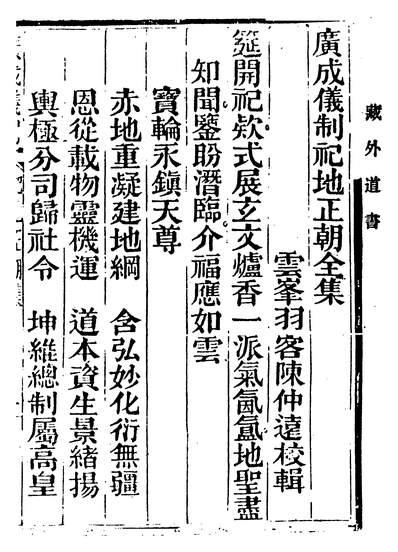 藏外道書
廣成儀制祀地正朝全集
雲峯羽客陳仲遠校輯
筵開祀欵式展玄文爐香一派氣氤氲地聖盡
知聞鑒盼潛臨介福應如雲
寶輪永鎮天尊
赤地重凝建地綱　含弘妙化衍無疆
恩從載物靈機運　道本資生景緒揚
輿極分司歸社令　坤維總制屬高皇